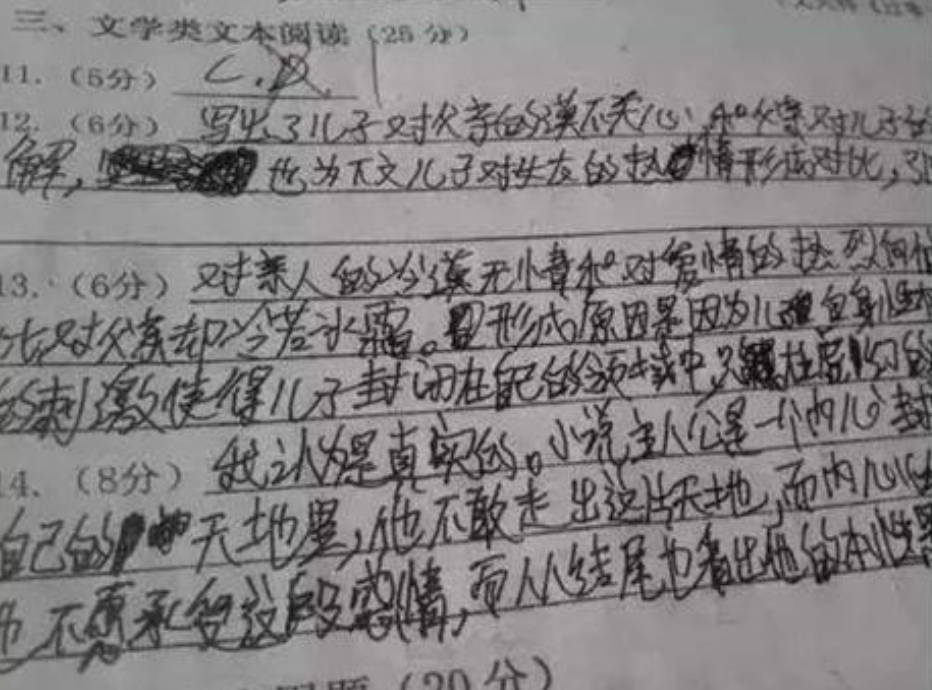 三、文学类文本阅读（25分）
11.（5分） C.D
12.（6分） 写出了儿子对父亲的漠不关心，和父亲对儿子的
解， 也为下文儿子对女友的热情形成对比，引
13.（6分） 对亲人的冷漠无情和对爱情的热烈向往
对父亲却冷若冰霜。形成原因是因为儿 自身性
的刺激使得儿子封闭在自己的领域中，只 在
14.（8分） 我认为是真实的。小说主人公是一个内心封
自己的 天地里，他不敢走出这片天地，而内心
也不愿承受这段感情，而从结尾也看出他的本性
题（20分）